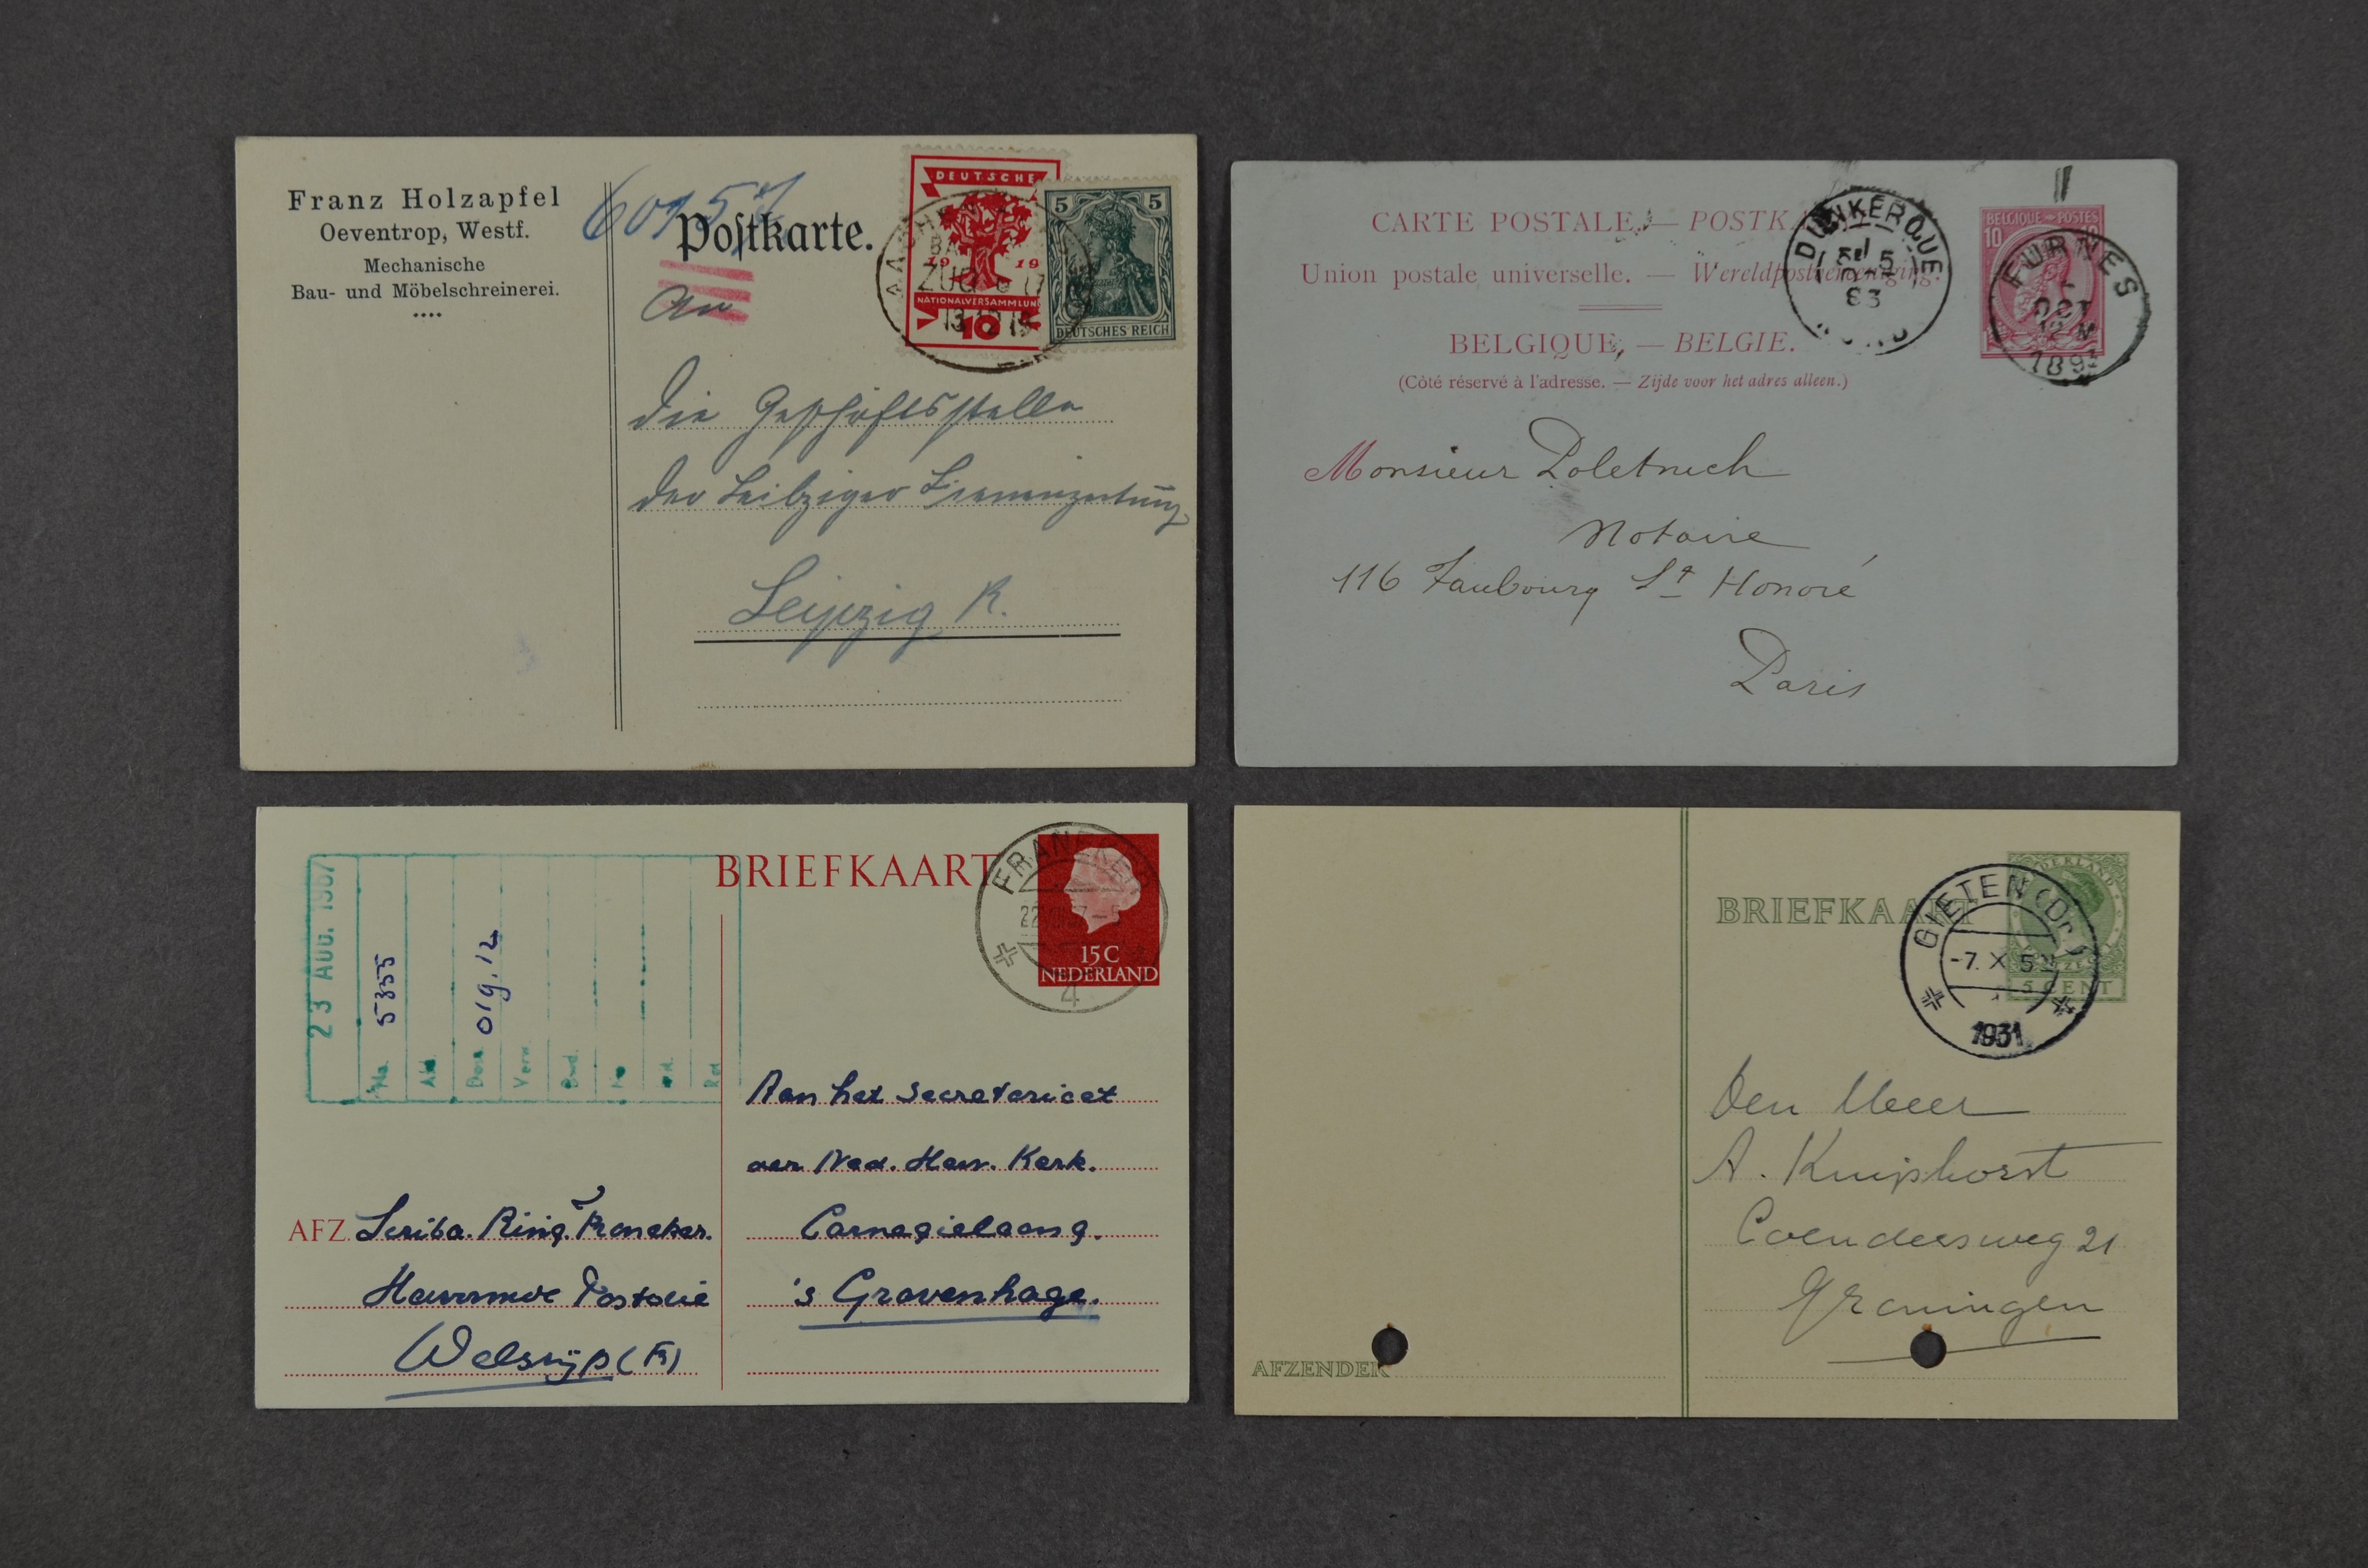 Franz Holzapfel
Oeventrop, Westf.
Mechanische
Bau- und Möbelschreinerei.
Postkarte.
An
die Geschäftsstelle
der Leipziger
Leipzig R.
DEUTSCHE
19 19
NATIONALVERSAMMLUN
10
5 5
DEUTSCHES REICH
ZUG
13 12 19
CARTE POSTALE. — POSTK
Union postale universelle. — Wereldpostvereeniging.
BELGIQUE, — BELGIE.
(Côté réservé à l'adresse. — Zijde voor het adres alleen.)
DUNKERQUE
BELGIQUE POSTES
10
FURNES
OCT
Monsieur
Notaire
116 Faubourg St Honoré
Paris
BRIEFKAART
FRANEKER
4
15 C
NEDERLAND
23 AUG. 1957
No. 5355
019.12
Verw.
Aan het Secretariaat
der Ned. Herv. Kerk.
Carnegielaan 9.
's Gravenhage.
AFZ. Scriba. Ring. Franeker.
Hervormde Pastorie
Welsrijp (Fr)
BRIEFKAART
GIETEN (Dr.)
-7. X 5
1931
5 CENT
Den Heer
A. Kuiphorst
Coendersweg 21
Groningen
AFZENDER